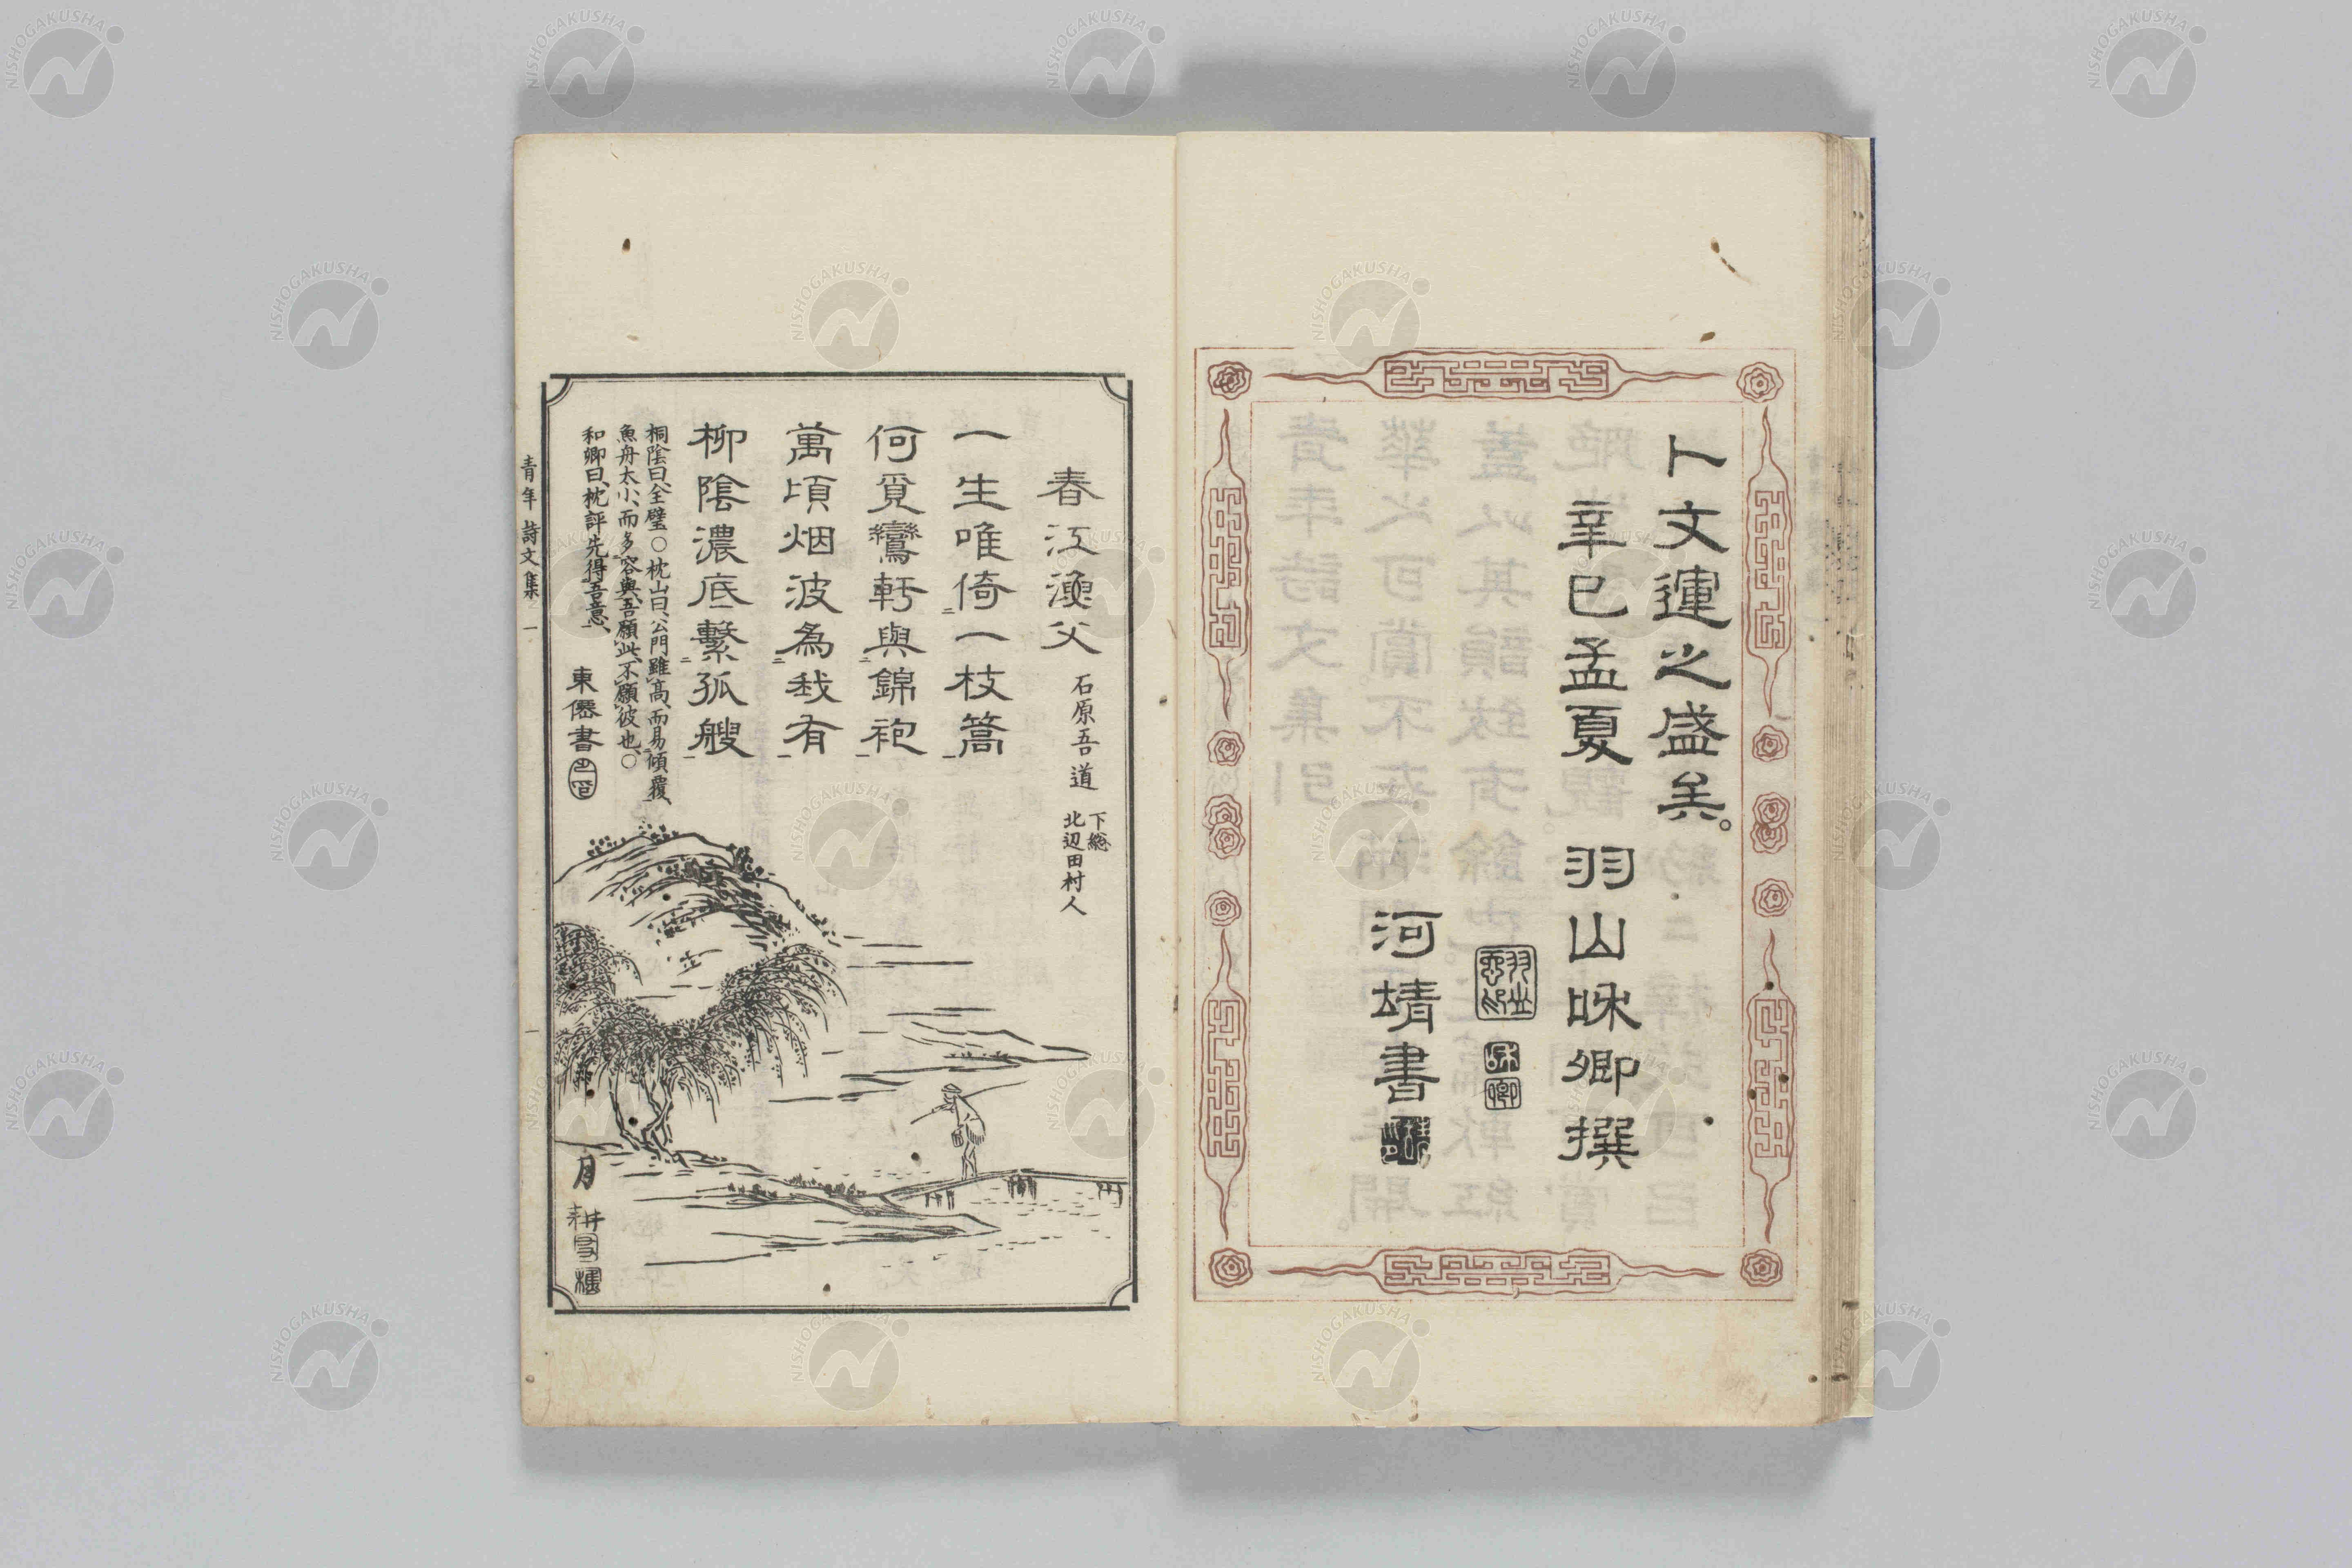 卜文運之盛矣。
辛巳孟夏 羽山味卿撰
河靖書
春江漁父 石原吾道 下総
北辺田村人
一生唯倚二一枝篙一
何覓鸞軒二與錦袍一
萬頃烟波為二我有一
柳陰濃底繫二孤艘一
桐陰曰、全璧○枕山曰、公門雖高、而易傾覆、
魚舟太小、而多容與、吾願此、不願彼也、○
和卿曰、枕評先得吾意、
東僊書
月耕
青年詩文集 一
一
NISHOGAKUSHA